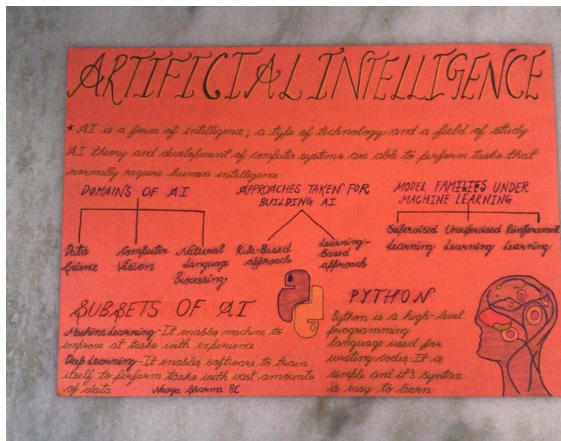 ARTIFICIAL INTELLIGENCE
* AI is a form of intelligence; a type of technology and a field of study.
AI theory and development of computer systems are able to perform tasks that
normally require human intelligence
DOMAINS OF AI
Data Science
Computer Vision
Natural Language Processing
APPROACHES TAKEN FOR
BUILDING AI
Rule-Based approach
Learning-Based approach
MODEL FAMILIES UNDER
MACHINE LEARNING
Supervised Learning
Unsupervised Learning
Reinforcement Learning
SUBSETS OF AI
Machine Learning - It enables machine to
improve at tasks with experience
Deep Learning - It enables software to train
itself to perform tasks with vast amounts
of data
Navya Sharma 8C
PYTHON
Python is a high-level
programming
language used for
writing codes. It is
simple and it's syntax
is easy to learn